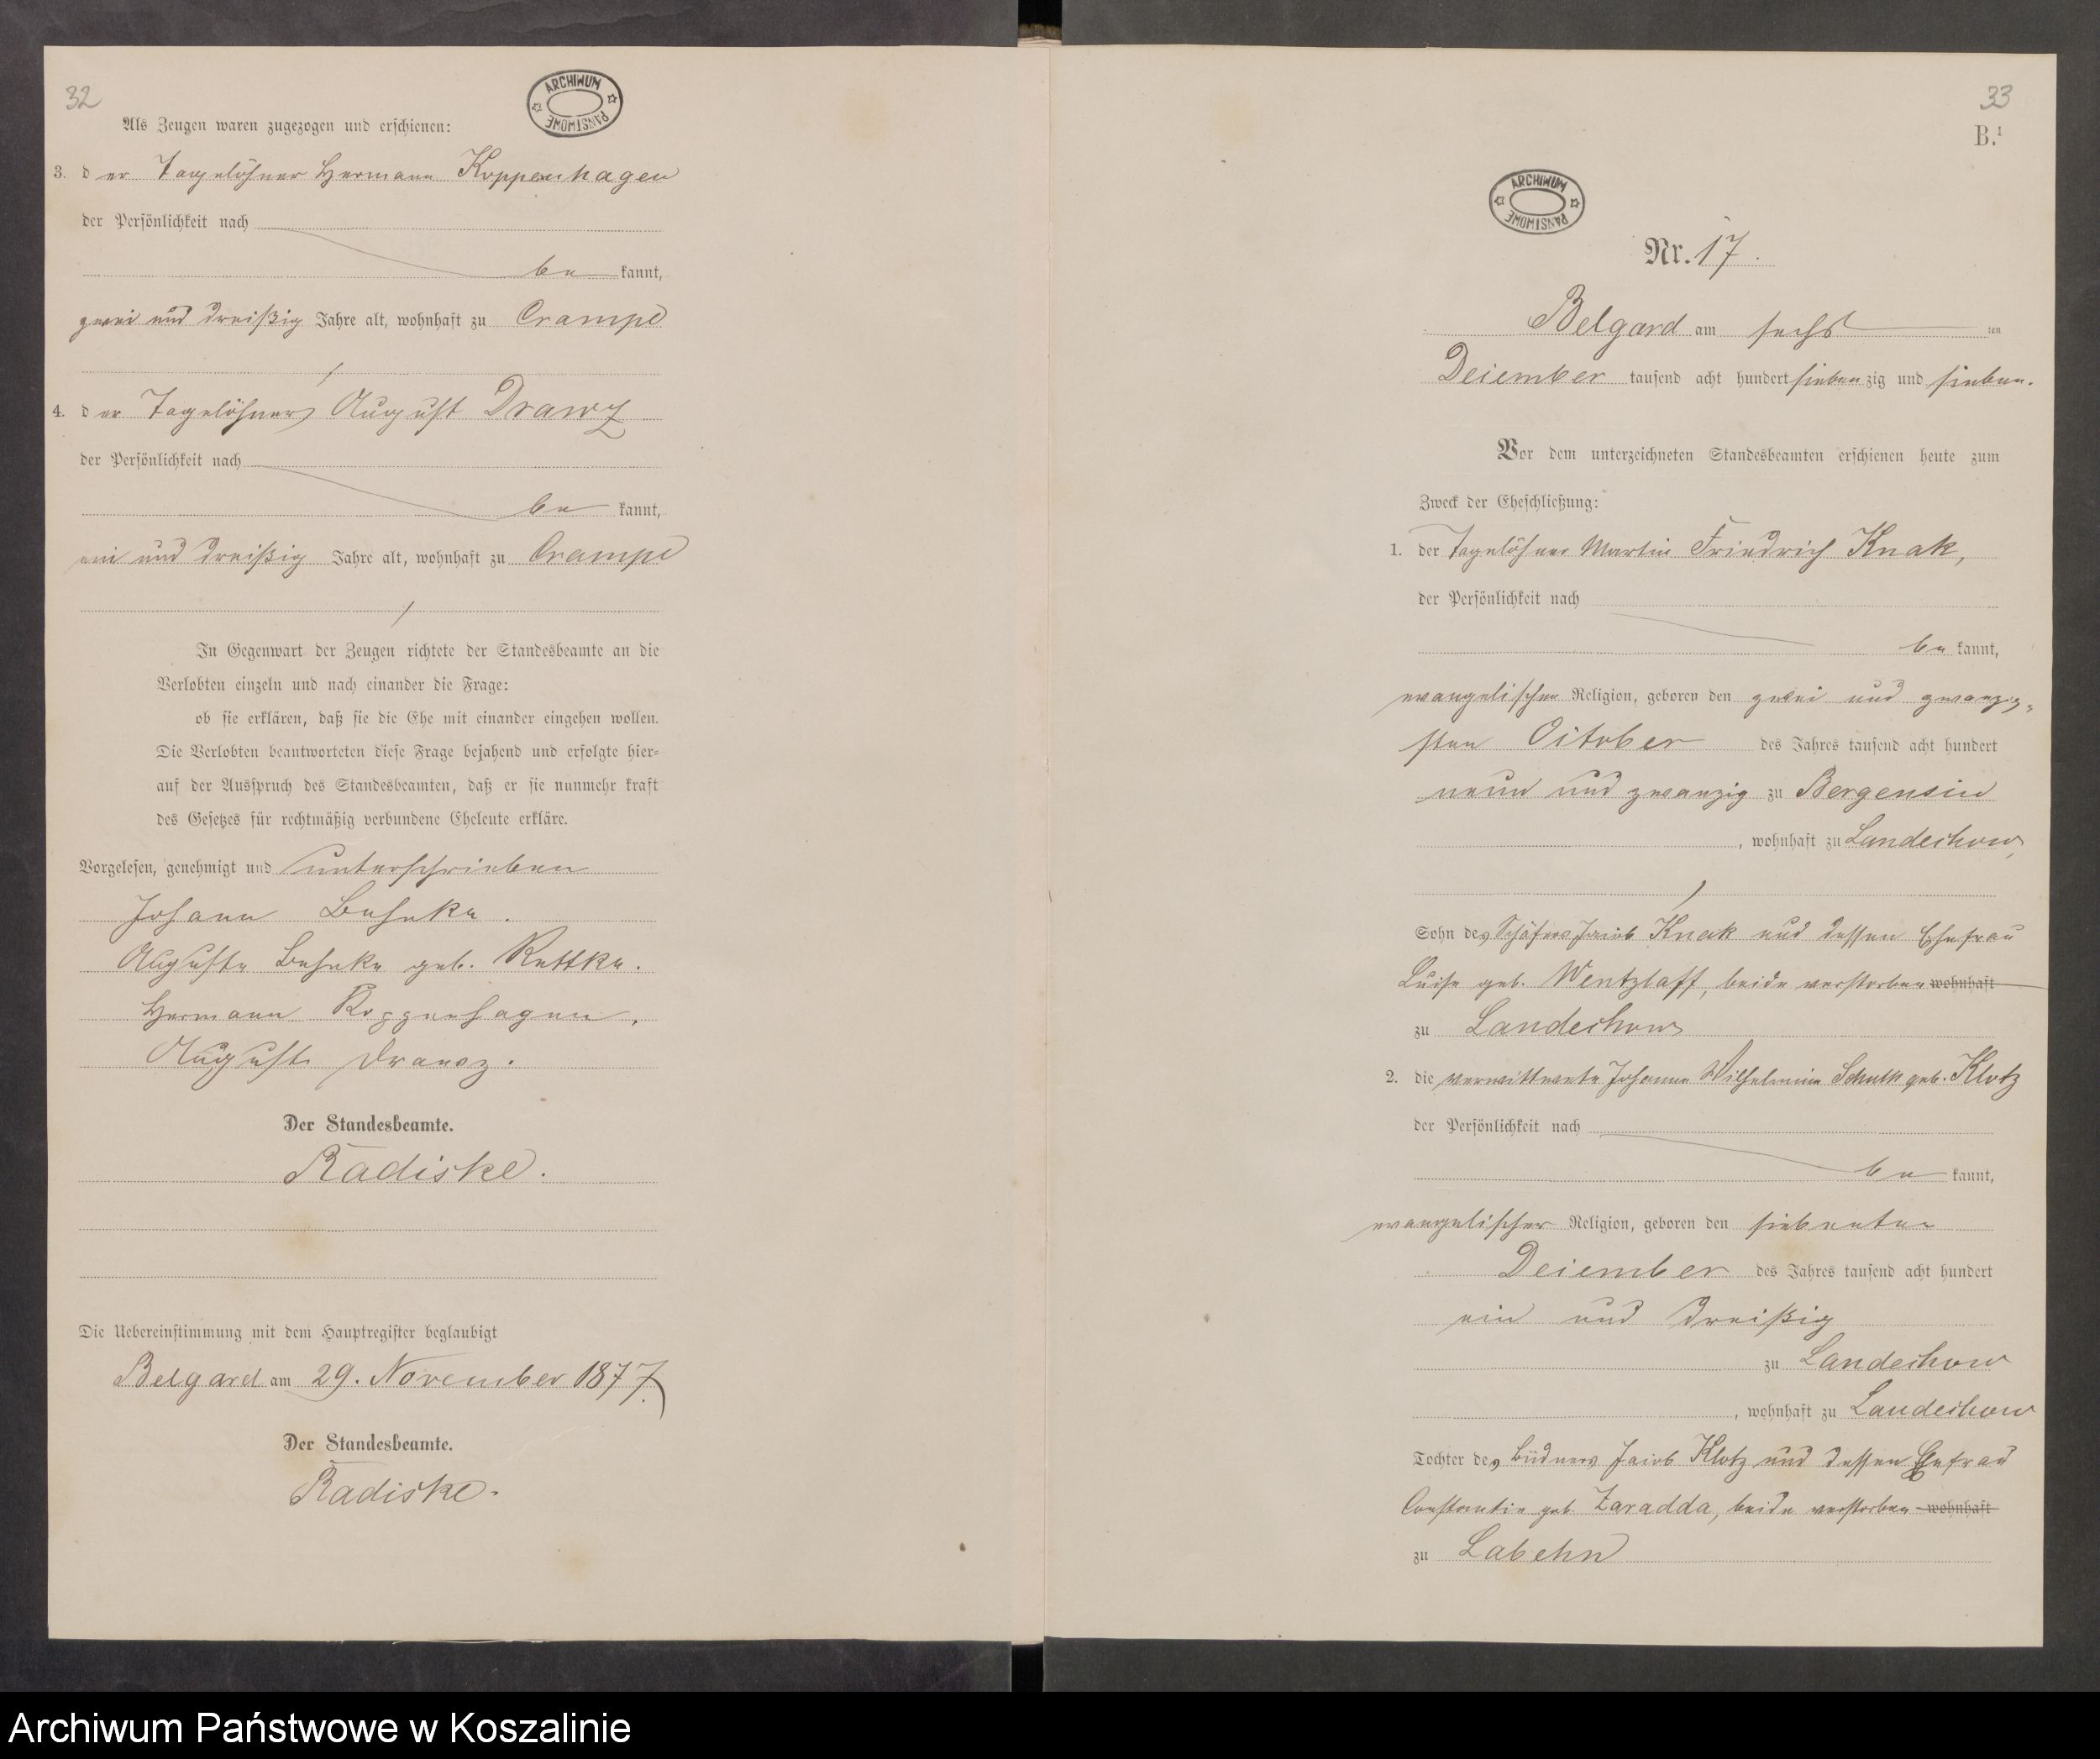 32
ARCHIWUM PAŃSTWOWE
Als Zeugen waren zugezogen und erschienen:
3. der Tagelöhner Hermann Koppenhagen
der Persönlichkeit nach
bekannt,
zwei und dreißig Jahre alt, wohnhaft zu Crampe
4. der Tagelöhner August Drawz
der Persönlichkeit nach
bekannt,
ein und dreißig Jahre alt, wohnhaft zu Crampe
In Gegenwart der Zeugen richtete der Standesbeamte an die
Verlobten einzeln und nach einander die Frage:
ob sie erklären, daß sie die Ehe mit einander eingehen wollen.
Die Verlobten beantworteten diese Frage bejahend und erfolgte hier-
auf der Ausspruch des Standesbeamten, daß er sie nunmehr kraft
des Gesetzes für rechtmäßig verbundene Eheleute erkläre.
Vorgelesen, genehmigt und unterschrieben
Johann Behnke.
Auguste Behnke geb. Rettke.
Hermann Koppenhagen.
August Drawz.
Der Standesbeamte.
Radiske.
Die Uebereinstimmung mit dem Hauptregister beglaubigt
Belgard am 29. November 1877.
Der Standesbeamte.
Radiske.
33
B.1
ARCHIWUM PAŃSTWOWE
Nr. 17.
Belgard am sechsten
December tausend acht hundert siebenzig und sieben.
Vor dem unterzeichneten Standesbeamten erschienen heute zum
Zweck der Eheschließung:
1. der Tagelöhner Martin Friedrich Knak,
der Persönlichkeit nach
bekannt,
evangelischer Religion, geboren den zwei und zwanzig-
sten October des Jahres tausend acht hundert
neun und zwanzig zu Bergensin
, wohnhaft zu Landechow,
Sohn des Schäfers Jacob Knak und dessen Ehefrau
Luise geb. Wentzlaff, beide verstorben wohnhaft
zu Landechow
2. die verwittwete Johanne Wilhelmine Schulk geb. Klotz
der Persönlichkeit nach
bekannt,
evangelischer Religion, geboren den siebenten
December des Jahres tausend acht hundert
ein und dreißig
zu Landechow
, wohnhaft zu Landechow
Tochter des Büdners Jacob Klotz und dessen Ehefrau
Constantie geb. Zaradda, beide verstorben wohnhaft
zu Labehn
Archiwum Państwowe w Koszalinie